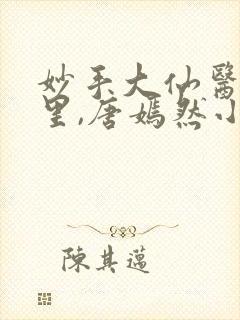 妙手大仙醫
里,唐嫣然小
陳其邁